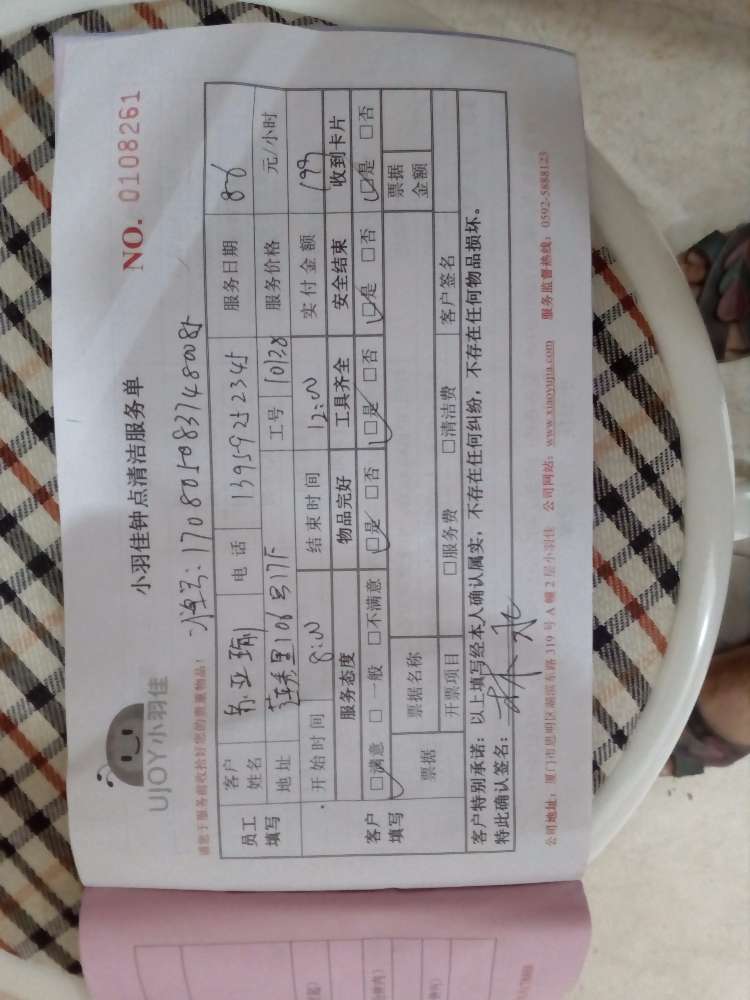 UJOY小羽佳
小羽佳钟点清洁服务单
NO. 0108261
请您于服务前收拾好您的贵重物品!
单号:1708050837480085
员工填写 客户姓名 苏亚瑜 电话 13959252345 服务日期 8-6
地址 莲秀里106号175 工号 10128 服务价格 元/小时
开始时间 8:00 结束时间 12:00 实付金额 199
客户填写 服务态度 物品完好 工具齐全 安全结束 收到卡片
□满意 □一般 □不满意 □是 □否 □是 □否 □是 □否 □是 □否
票据 票据名称 票据金额
开票项目 □服务费 □清洁费 客户签名
客户特别承诺:以上填写经本人确认属实,不存在任何纠纷,不存在任何物品损坏。
特此确认签名:
公司地址:厦门市思明区湖滨东路 319 号 A 幢 2 层小羽佳 公司网站:www.xiaoyujia.com 服务监督热线:0592-5888123